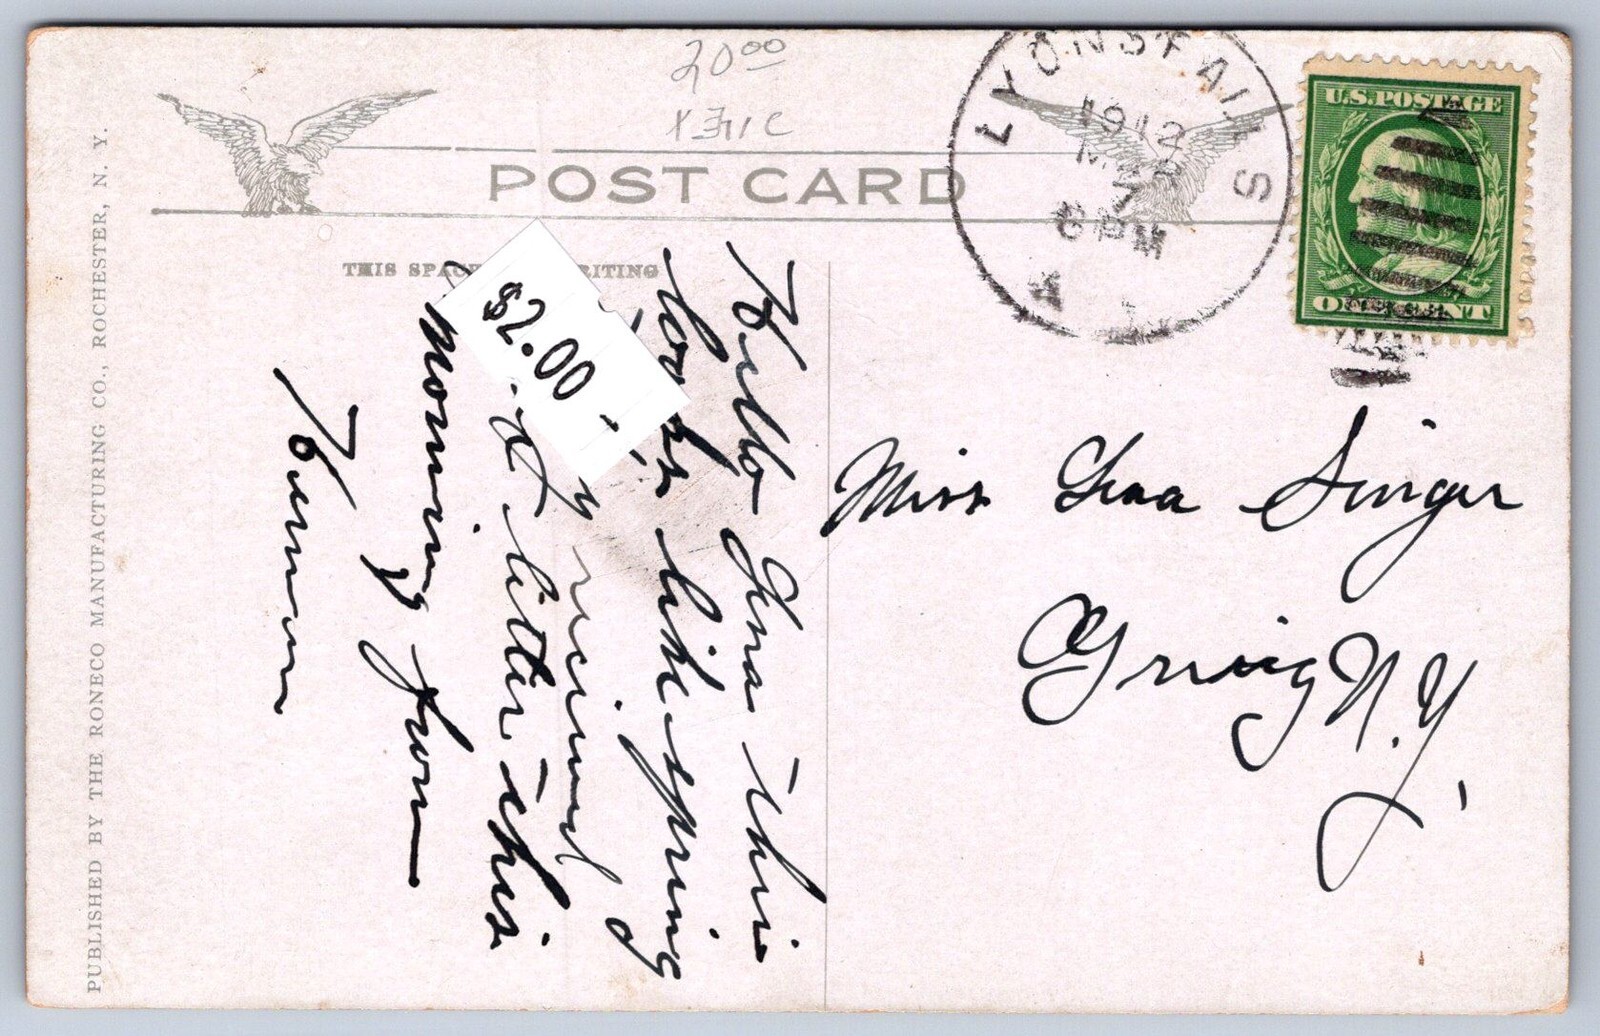 20 00
POST CARD
LYONS FALLS
1912
7
6 PM
U.S. POSTAGE
ONE CENT
THIS SPAC RITING
$2.00
Hello Lena this
looks like spring
y recieved
litter this
Morning from
Miss Lena Singer
Greig N.Y.
PUBLISHED BY THE RONECO MANUFACTURING CO., ROCHESTER, N. Y.